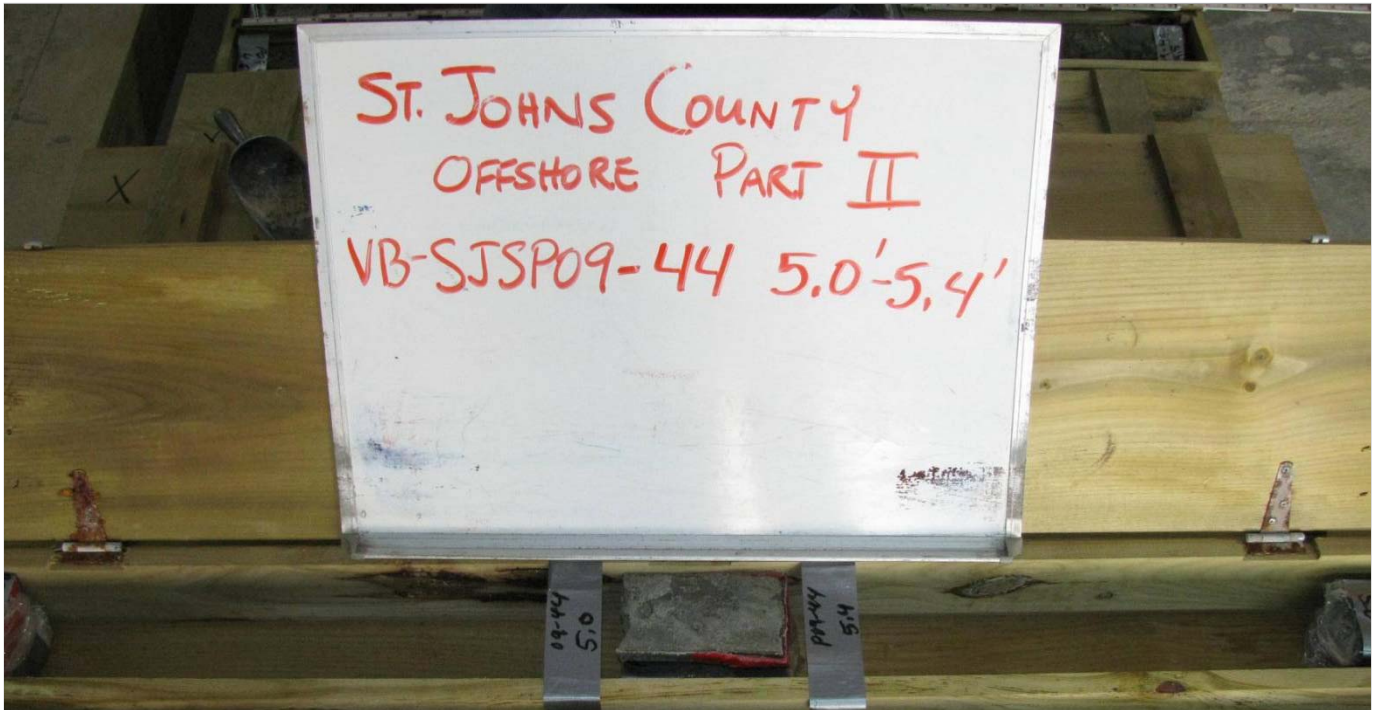 ST. JOHNS COUNTY
OFFSHORE PART II
VB-SJSP09-44 5.0'-5.4'
09-44
5.0
P09-44
5.4
X